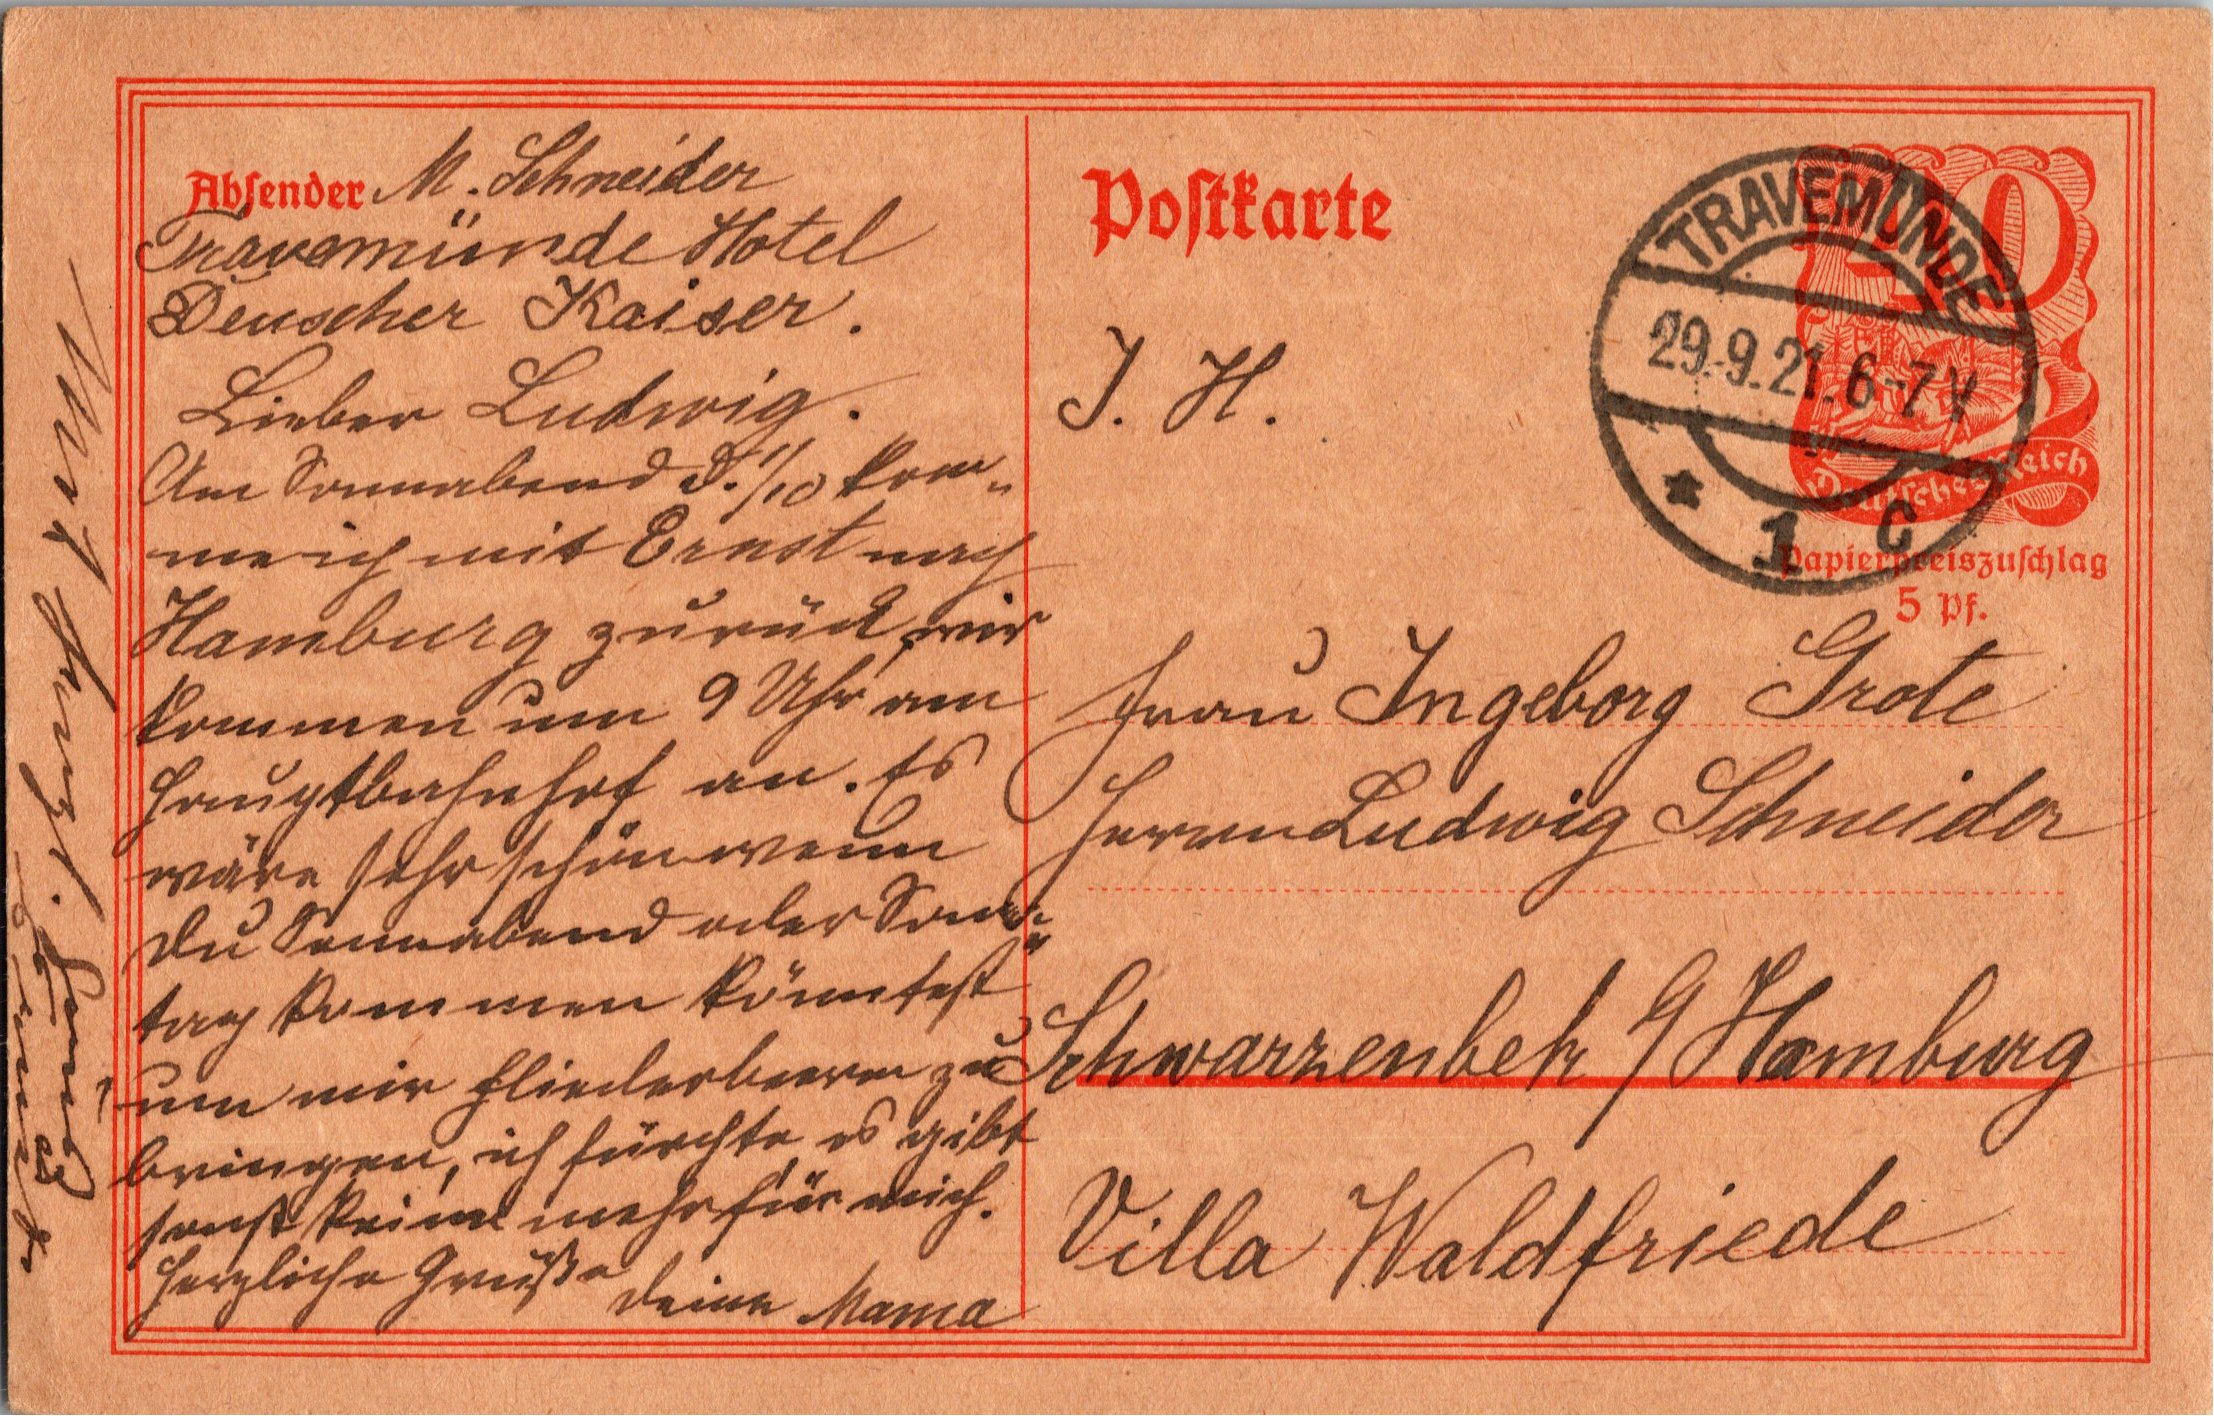 Absender M. Schneider
Travemünde Hotel
Deuscher Kaiser.
Lieber Ludwig.
Am Sonnabend d. 1/10 kom„
me ich mit Ernst nach
Hamburg zurück, wir
kommen um 9 Uhr am
Hauptbahnhof an. Es
wäre sehr schön wenn
Du Sonnabend oder Sonn„
tag kommen könntest
um mir Fliederbeeren zu
bringen, ich fürchte es gibt
sonst keine mehr für mich.
Herzliche Grüße
Deine Mama
Postkarte
J. H.
Frau Ingeborg Grote
Herrn Ludwig Schneider
Schwarzenbek b/Hamburg
Villa Waldfriede
TRAVEMÜNDE
29.9.21.6-7V
* 1 c
40
Deutsches Reich
Papierpreiszuschlag
5 Pf.
Gruß
Ernst